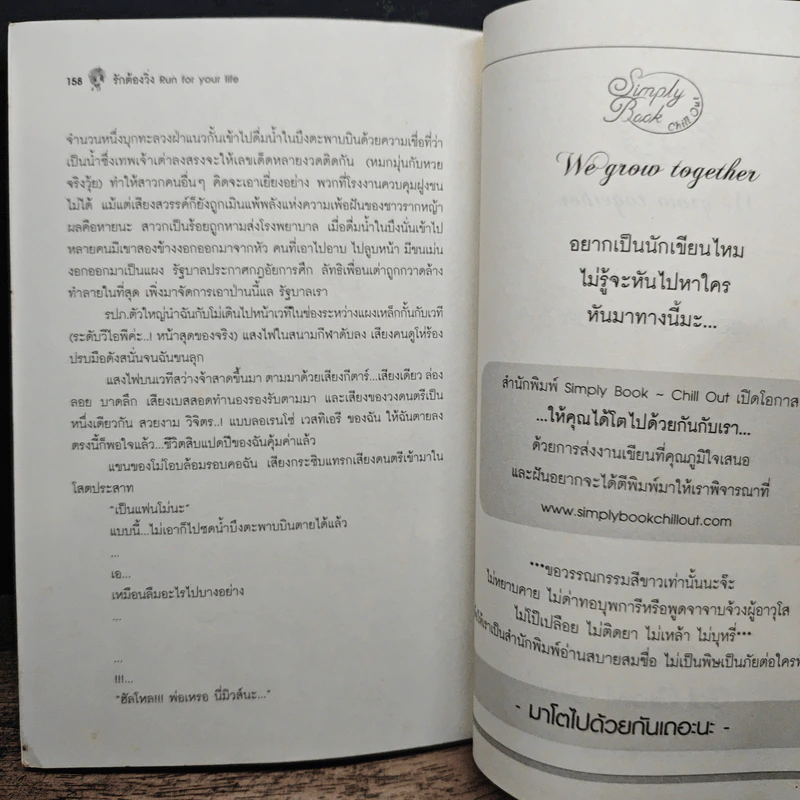 158 รักต้องวิ่ง Run for your life
จำนวนหนึ่งบุกทะลวงฝ่าแนวกั้นเข้าไปดื่มน้ำในบึงตะพาบบินด้วยความเชื่อที่ว่า
เป็นน้ำซึ่งเทพเจ้าเต่าลงสรงจะให้เลขเด็ดหลายงวดติดกัน (หมกมุ่นกับหวย
จริงวุ้ย) ทำให้สาวกคนอื่นๆ คิดจะเอาเยี่ยงอย่าง พวกที่โรงงานควบคุมฝูงชน
ไม่ได้ แม้แต่เสียงสวรรค์ก็ยังถูกเมินแพ้พลังแห่งความเพ้อฝันของชาวรากหญ้า
ผลคือหายนะ สาวกเป็นร้อยถูกหามส่งโรงพยาบาล เมื่อดื่มน้ำในบึงนั่นเข้าไป
หลายคนมีเขาสองข้างงอกออกมาจากหัว คนที่เอาไปอาบ ไปลูบหน้า มีขนเม่น
งอกออกมาเป็นแผง รัฐบาลประกาศกฎอัยการศึก ลัทธิเพื่อนเต่าถูกกวาดล้าง
ทำลายในที่สุด เพิ่งมาจัดการเอาป่านนี้แล รัฐบาลเรา
รปภ.ตัวใหญ่นำฉันกับโม่เดินไปหน้าเวทีในช่องระหว่างแผงเหล็กกั้นกับเวที
(ระดับวีไอพีค่ะ..! หน้าสุดของจริง) แสงไฟในสนามกีฬาดับลง เสียงคนดูโห่ร้อง
ปรบมือดังสนั่นจนฉันขนลุก
แสงไฟบนเวทีสว่างจ้าสาดขึ้นมา ตามมาด้วยเสียงกีตาร์...เสียงเดียว ล่อง
ลอย บาดลึก เสียงเบสสอดทำนองรองรับตามมา และเสียงของวงดนตรีเป็น
หนึ่งเดียวกัน สวยงาม วิจิตร..! แบบลอเรนโซ่ เวสทิเอรี ของฉัน ให้ฉันตายลง
ตรงนี้ก็พอใจแล้ว...ชีวิตสิบแปดปีของฉันคุ้มค่าแล้ว
แขนของโม่โอบล้อมรอบคอฉัน เสียงกระซิบแทรกเสียงดนตรีเข้ามาใน
โสตประสาท
“เป็นแฟนโม่นะ”
แบบนี้...ไม่เอาก็ไปซดน้ำบึงตะพาบบินตายได้แล้ว
...
เอ...
เหมือนลืมอะไรไปบางอย่าง
...
...
!!!...
“ฮัลโหล!!! พ่อเหรอ นี่มิวส์นะ...”
Simply
Book
Chill Out
We grow together
อยากเป็นนักเขียนไหม
ไม่รู้จะหันไปหาใคร
หันมาทางนี้มะ...
สำนักพิมพ์ Simply Book ~ Chill Out เปิดโอกาส
...ให้คุณได้โตไปด้วยกันกับเรา...
ด้วยการส่งงานเขียนที่คุณภูมิใจเสนอ
และฝันอยากจะได้ตีพิมพ์มาให้เราพิจารณาที่
www.simplybookchillout.com
***ขอวรรณกรรมสีขาวเท่านั้นนะจ๊ะ
ไม่หยาบคาย ไม่ด่าทอบุพการีหรือพูดจาจาบจ้วงผู้อาวุโส
ไม่โป๊เปลือย ไม่ติดยา ไม่เหล้า ไม่บุหรี่***
เราเป็นสำนักพิมพ์อ่านสบายสมชื่อ ไม่เป็นพิษเป็นภัยต่อใคร
- มาโตไปด้วยกันเถอะนะ -